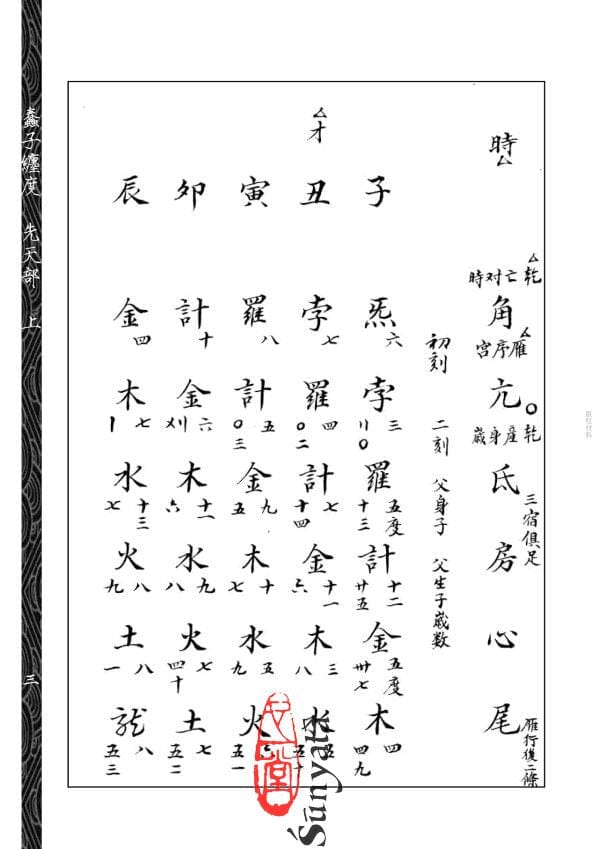 時△
△乾亡对時
角
△雁序宮
亢○
乾産身歲
氐
三宿俱足
房
心
尾
雁行後二條
初刻 二刻 父身子 父生子歲数
子
炁 六
孛 三
羅 五度 十三
計 十二 廿五
金 五度 卅七
木 四 四九
△才
丑
孛 七
羅 四 〇二
計 七 十四
金 十一 六
木 三 八
水
寅
羅 八
計 五 〇三
金 九 五
木 十 七
水 五 九
火 六 五一
卯
計 十
金 六
木 十一 六
水 九 八
火 七 四十
土 七 五二
辰
金 四
木 七 〡
水 十三 七
火 八 九
土 八 一
龍 八 五三
蠡子纏度 先天部 上
三
Śūnyatā
版权材料